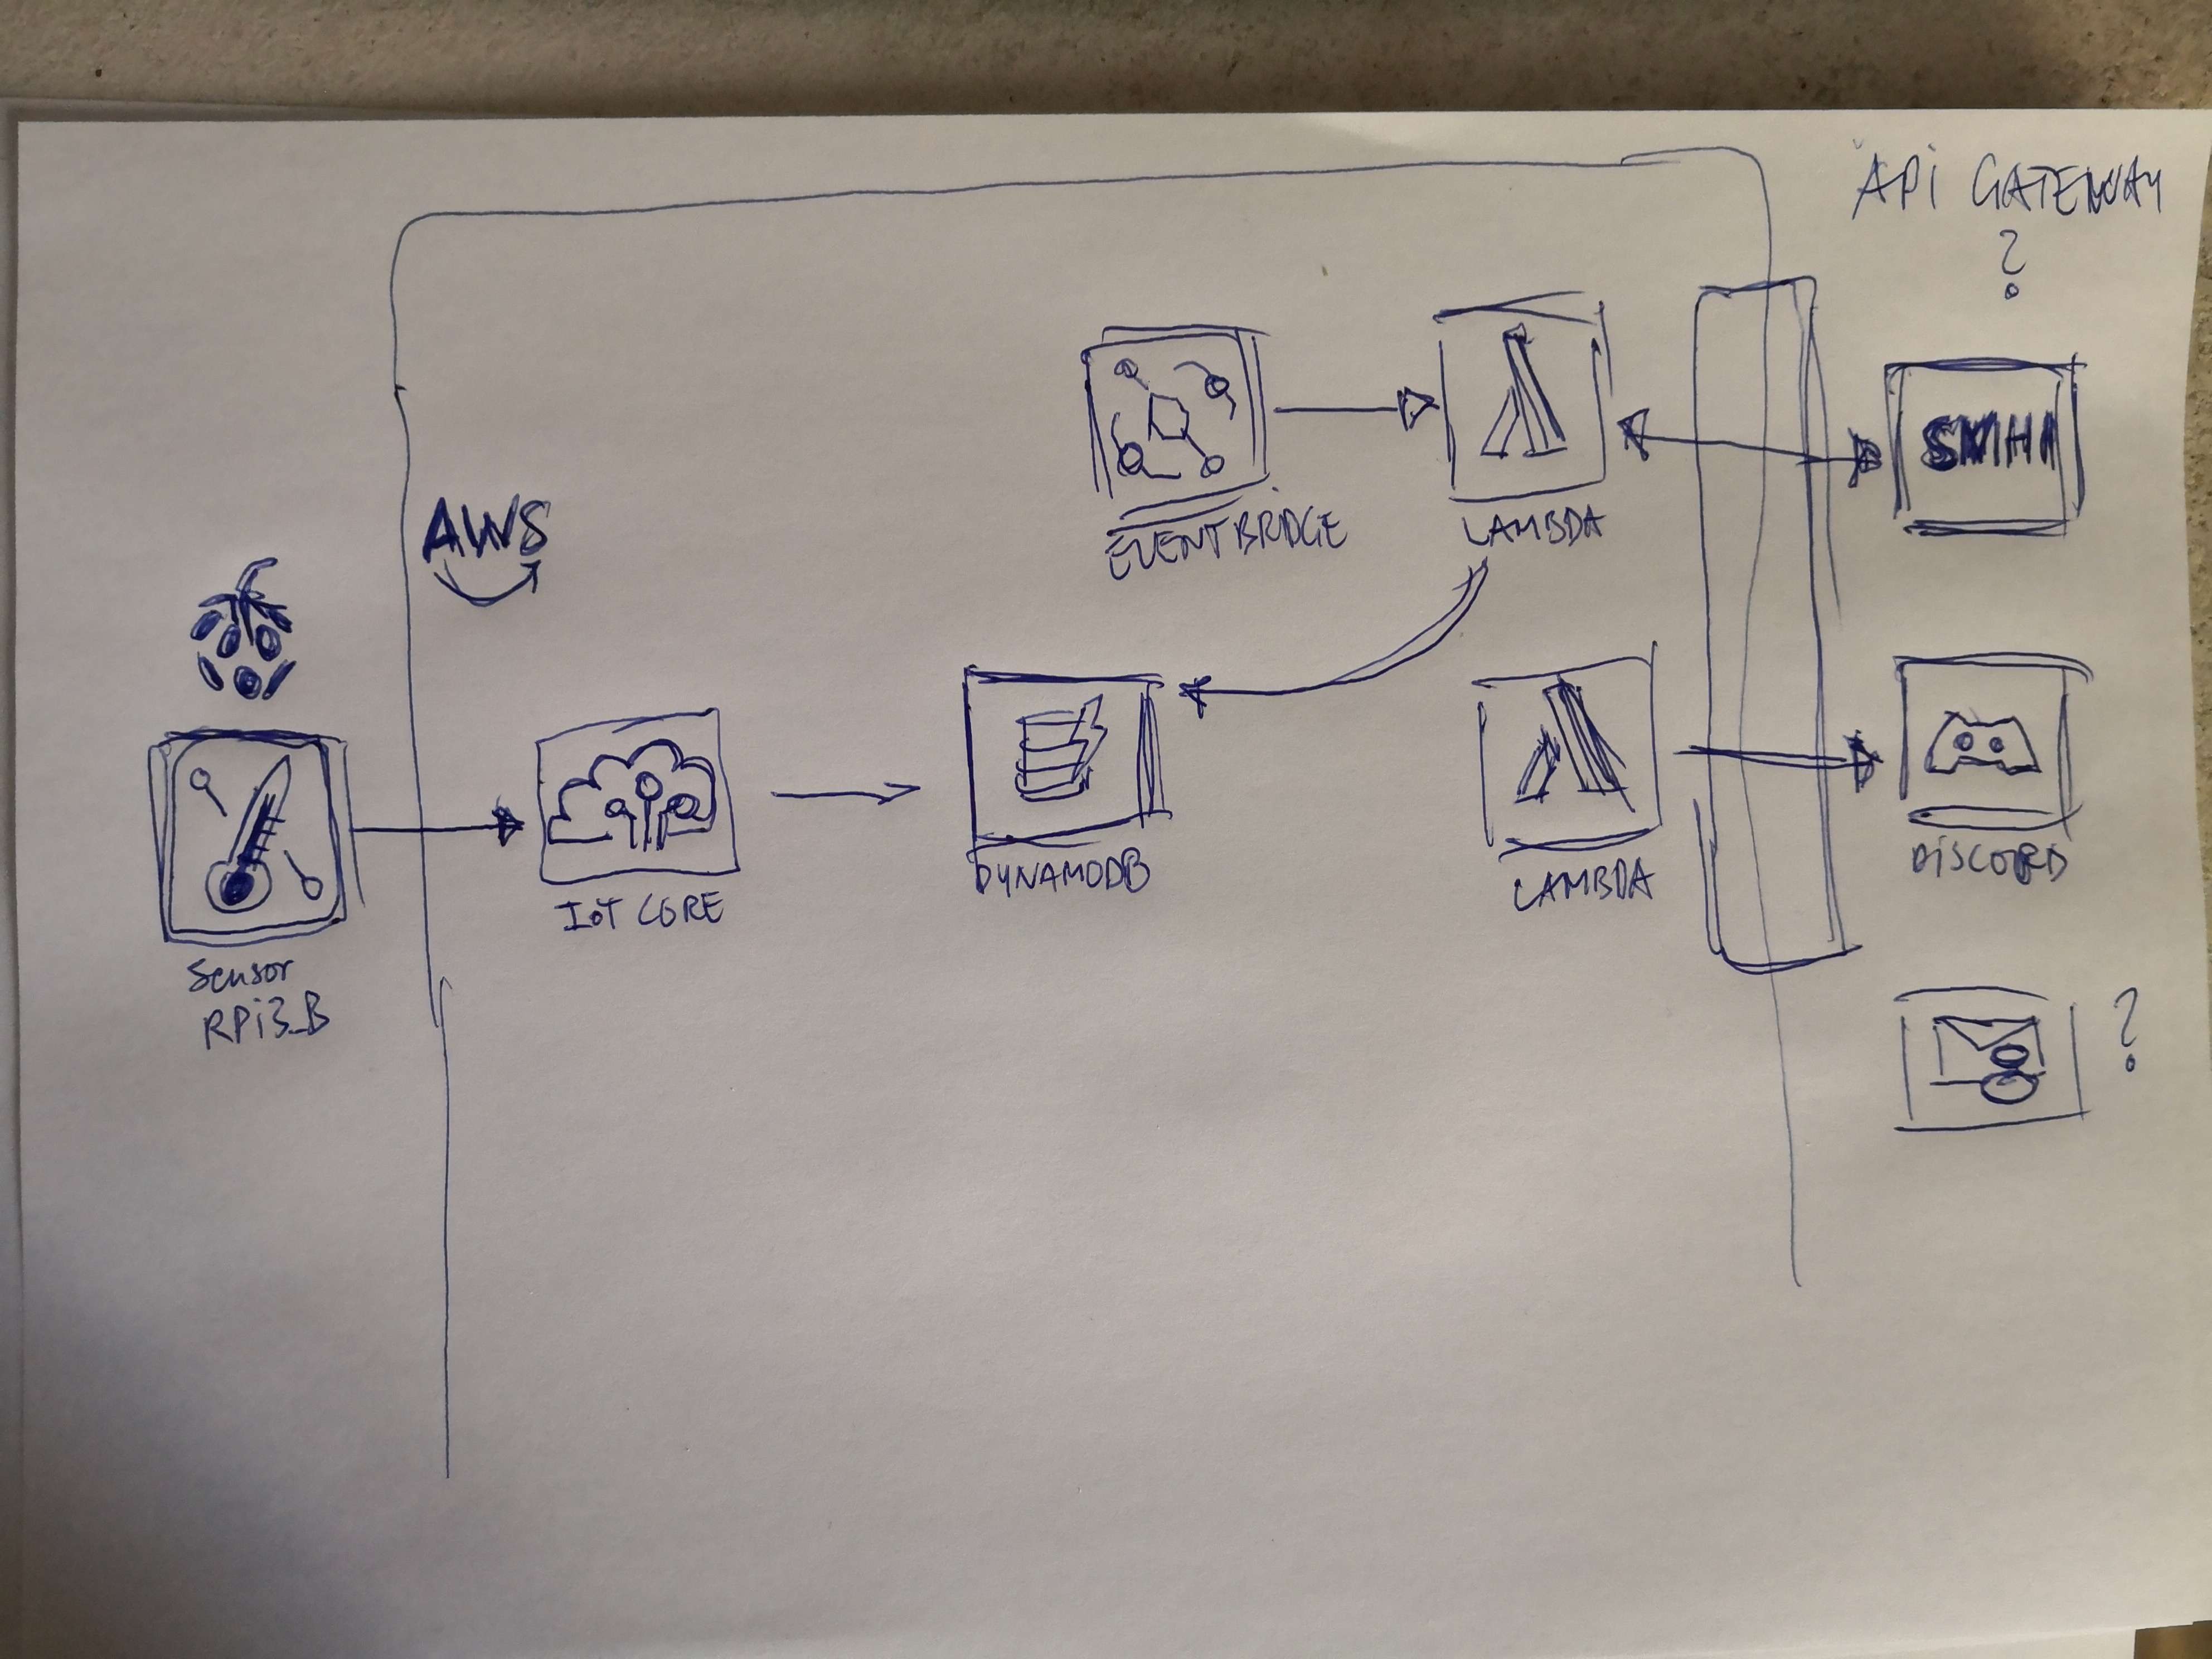 API GATEWAY
?
AWS
EVENTBRIDGE
LAMBDA
SMHI
Sensor
RPi3_B
IoT CORE
DYNAMODB
LAMBDA
DISCORD
?